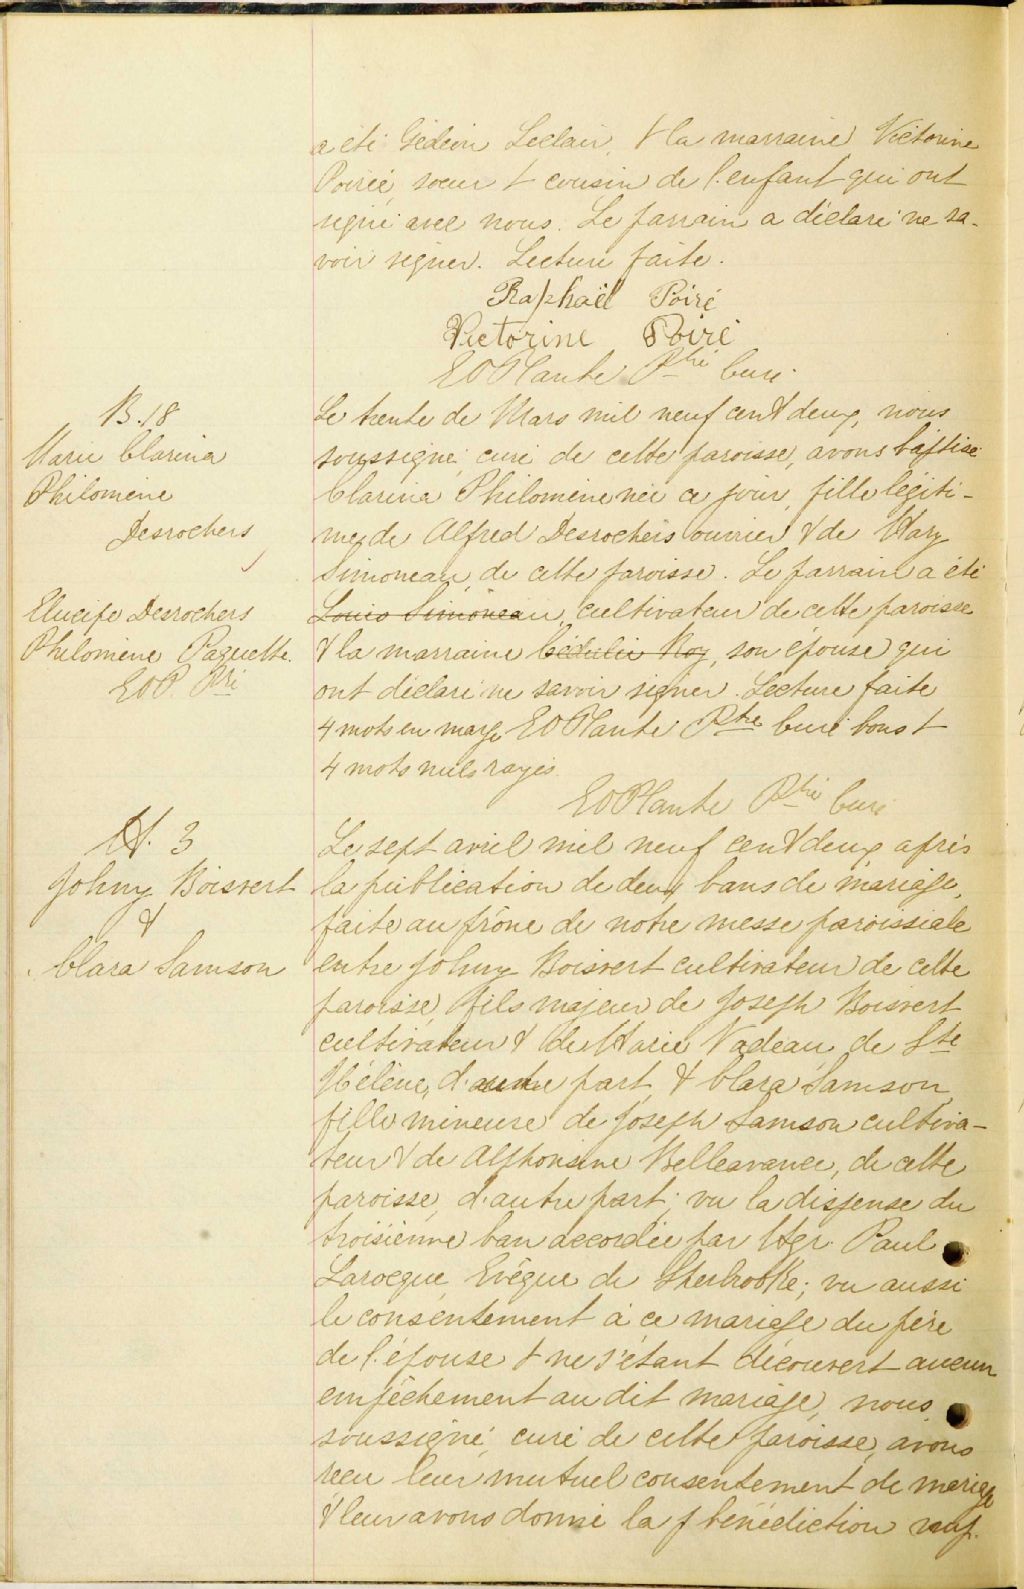 a été Gédéon Leclair, & la marraine Victorine
Poiré, sœur & cousin de l'enfant qui ont
signé avec nous. Le parrain a déclaré ne sa-
voir signer. Lecture faite.
Raphaël Poiré
Victorine Poiré
EOPlante Ptre Curé
B. 18
Marie Clarina
Philomène
Desrochers
Le trente de Mars mil neuf cent deux, nous
soussigné, curé de cette paroisse, avons baptisé
Clarina Philomène née ce jour, fille légiti-
me de Alfred Desrochers ouvrier & de Mary
Simoneau, de cette paroisse. Le parrain a été
Elucipe Desrochers
Philomène Paquette.
EOP. Ptre
Louis Simoneau, cultivateur de cette paroisse
& la marraine Cédulie Roy, son épouse qui
ont déclaré ne savoir signer. Lecture faite
4 mots en marge EOPlante Ptre Curé bons &
4 mots nuls rayés.
EOPlante Ptre Curé
M. 3
Johny Boisvert
&
Clara Samson
Le sept avril mil neuf cent deux, après
la publication de deux bans de mariage,
faite au prône de notre messe paroissiale
entre Johny Boisvert cultivateur de cette
paroisse, fils majeur de Joseph Boisvert
cultivateur & de Marie Nadeau, de Ste
Hélène, d'une part, & Clara Samson,
fille mineure de Joseph Samson cultiva-
teur & de Alphonsine Bellavance, de cette
paroisse, d'autre part; vu la dispense du
troisième ban accordée par Mgr. Paul
Larocque, Evêque de Sherbrooke; vu aussi
le consentement à ce mariage du père
de l'épouse & ne s'étant découvert aucun
empêchement au dit mariage, nous
soussigné, curé de cette paroisse, avons
reçu leur mutuel consentement de mariage
& leur avons donné la bénédiction nup.